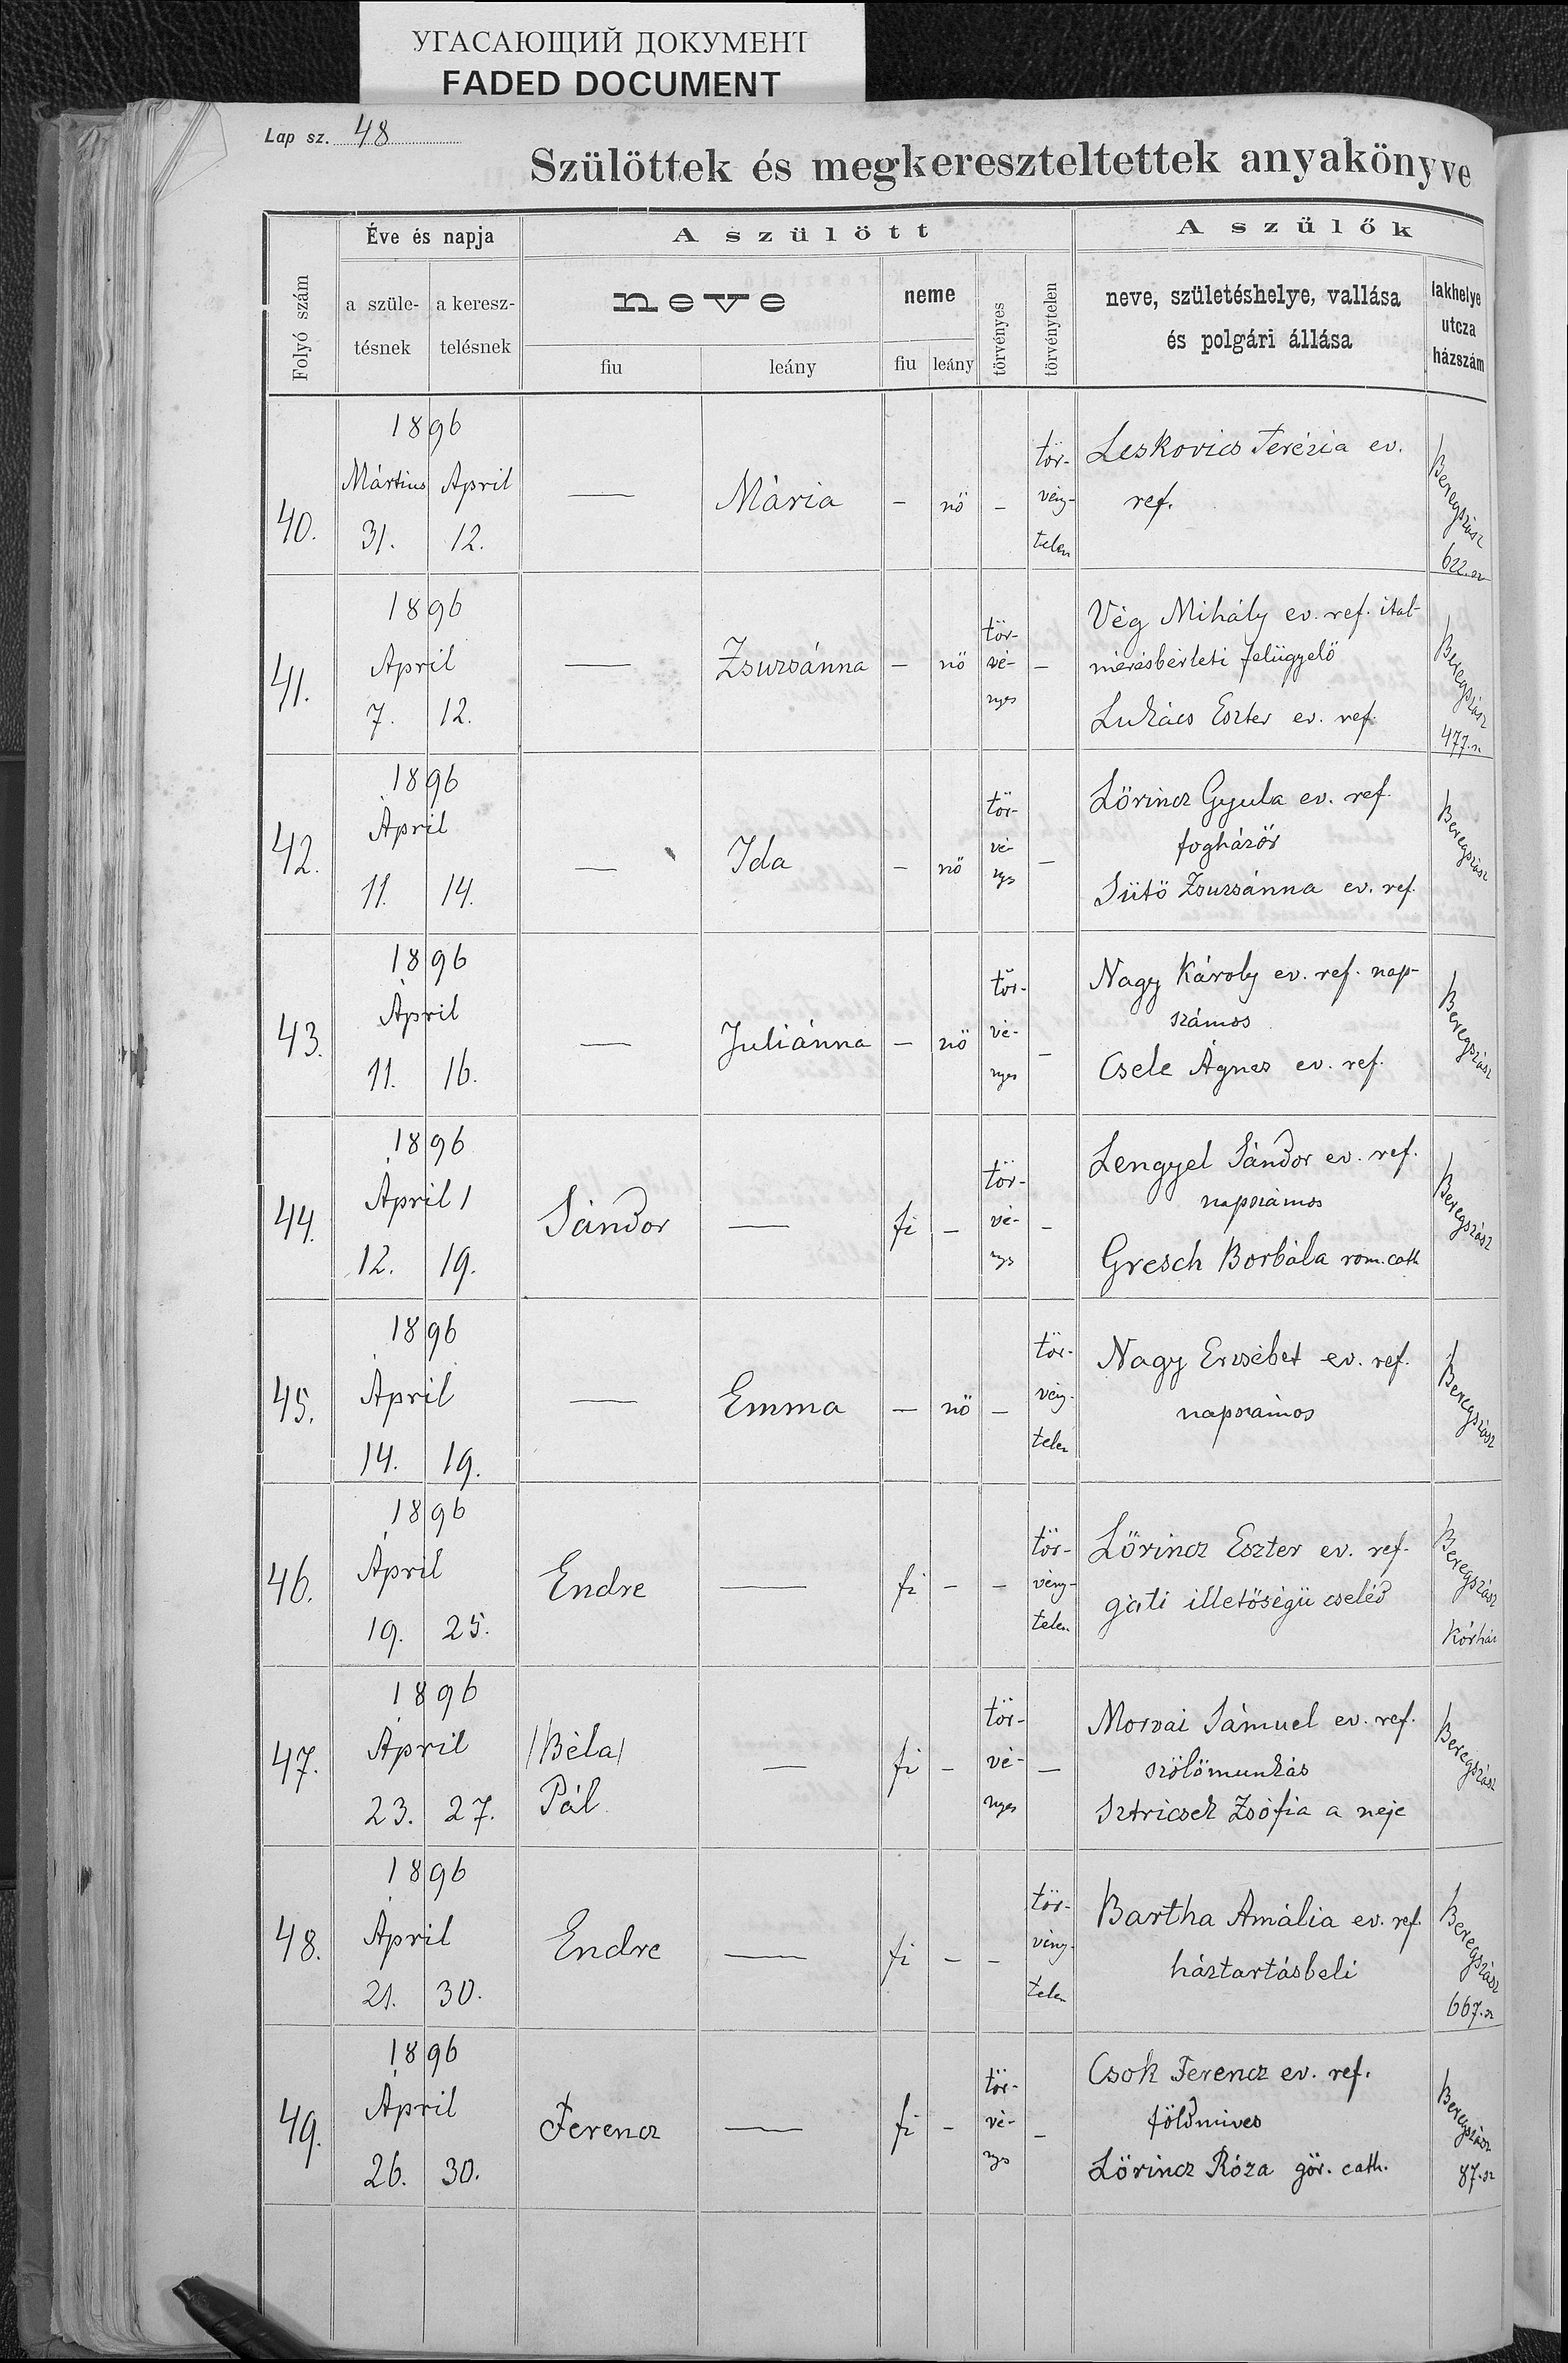 УГАСАЮЩИЙ ДОКУМЕНТ
FADED DOCUMENT
Lap sz. 48
Szülöttek és megkereszteltettek anyakönyve
Folyó szám
Éve és napja
a szüle-
tésnek
a keresz-
telésnek
A szülött
neve
fiu
leány
neme
fiu
leány
törvényes
törvénytelen
A szülők
neve, születéshelye, vallása
és polgári állása
lakhelye
utcza
házszám
40.
1896
Mártius April
31. 12.
—
Mária
- nő -
tör-
vény-
telen
Leskovics Terézia ev.
ref.
Beregszász
622. sz
41.
1896
April
7. 12.
—
Zsuzsánna
- nő
tör-
vé-
nyes
-
Vég Mihály ev. ref. ital-
mérésbérleti felügyelő
Lukács Eszter ev. ref.
Beregszász
477. sz
42.
1896
April
11. 14.
—
Ida
- nő
tör-
vé-
nys
-
Lőrincz Gyula ev. ref.
fogházőr
Sütő Zsuzsánna ev. ref.
Beregszász
43.
1896
April
11. 16.
—
Juliánna
- nő
tör-
vé-
nyes
-
Nagy Károly ev. ref. nap-
számos
Csele Ágnes ev. ref.
Beregszász
44.
1896
April
12. 19.
Sándor
—
fi -
tör-
vé-
nys
-
Lengyel Sándor ev. ref.
napszámos
Gresch Borbála rom. cath
Beregszász
45.
1896
April
14. 19.
—
Emma
- nő -
tör-
vény-
telen
Nagy Erzsébet ev. ref.
napszámos
Beregszász
46.
1896
April
19. 25.
Endre
—
fi - -
tör-
vény-
telen
Lőrincz Eszter ev. ref.
gáti illetőségü cseléd
Beregszász
Kórház
47.
1896
April
23. 27.
/Béla/
Pál
—
fi -
tör-
vé-
nyes
-
Morvai Sámuel ev. ref.
szőlőmunkás
Sztricsek Zsófia a neje
Beregszász
48.
1896
April
21. 30.
Endre
—
fi - -
tör-
vény-
telen
Bartha Amália ev. ref.
háztartásbeli
Beregszász
667. sz
49.
1896
April
26. 30.
Ferencz
—
fi -
tör-
vé-
nys
-
Csók Ferencz ev. ref.
földmives
Lőrincz Róza gör. cath.
Beregszász
87. sz